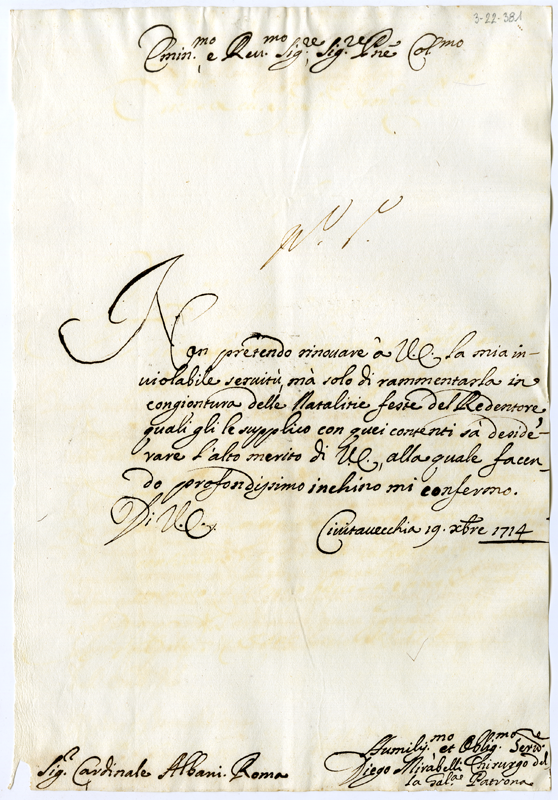 3-22-381
Emin.mo e Reu.mo Sig.re Sig.re Pne Col.mo
Non pretendo rinouare à V.E. la mia in-
uiolabile seruitù, mà solo di rammentarla in
congiontura delle Natalitie feste del Redentore
quali gli le supplico con quei contenti sà deside-
rare l'alto merito di V.E., alla quale facen-
do profondissimo inchino mi confermo.
Di V.E.
Ciuitauecchia 19. xbre 1714
Humiliss.mo et Oblig.mo Serv.e
Diego Mirabelli Chirurgo del
la Gal.a Patrona
Sig.r Cardinale Albani. Roma